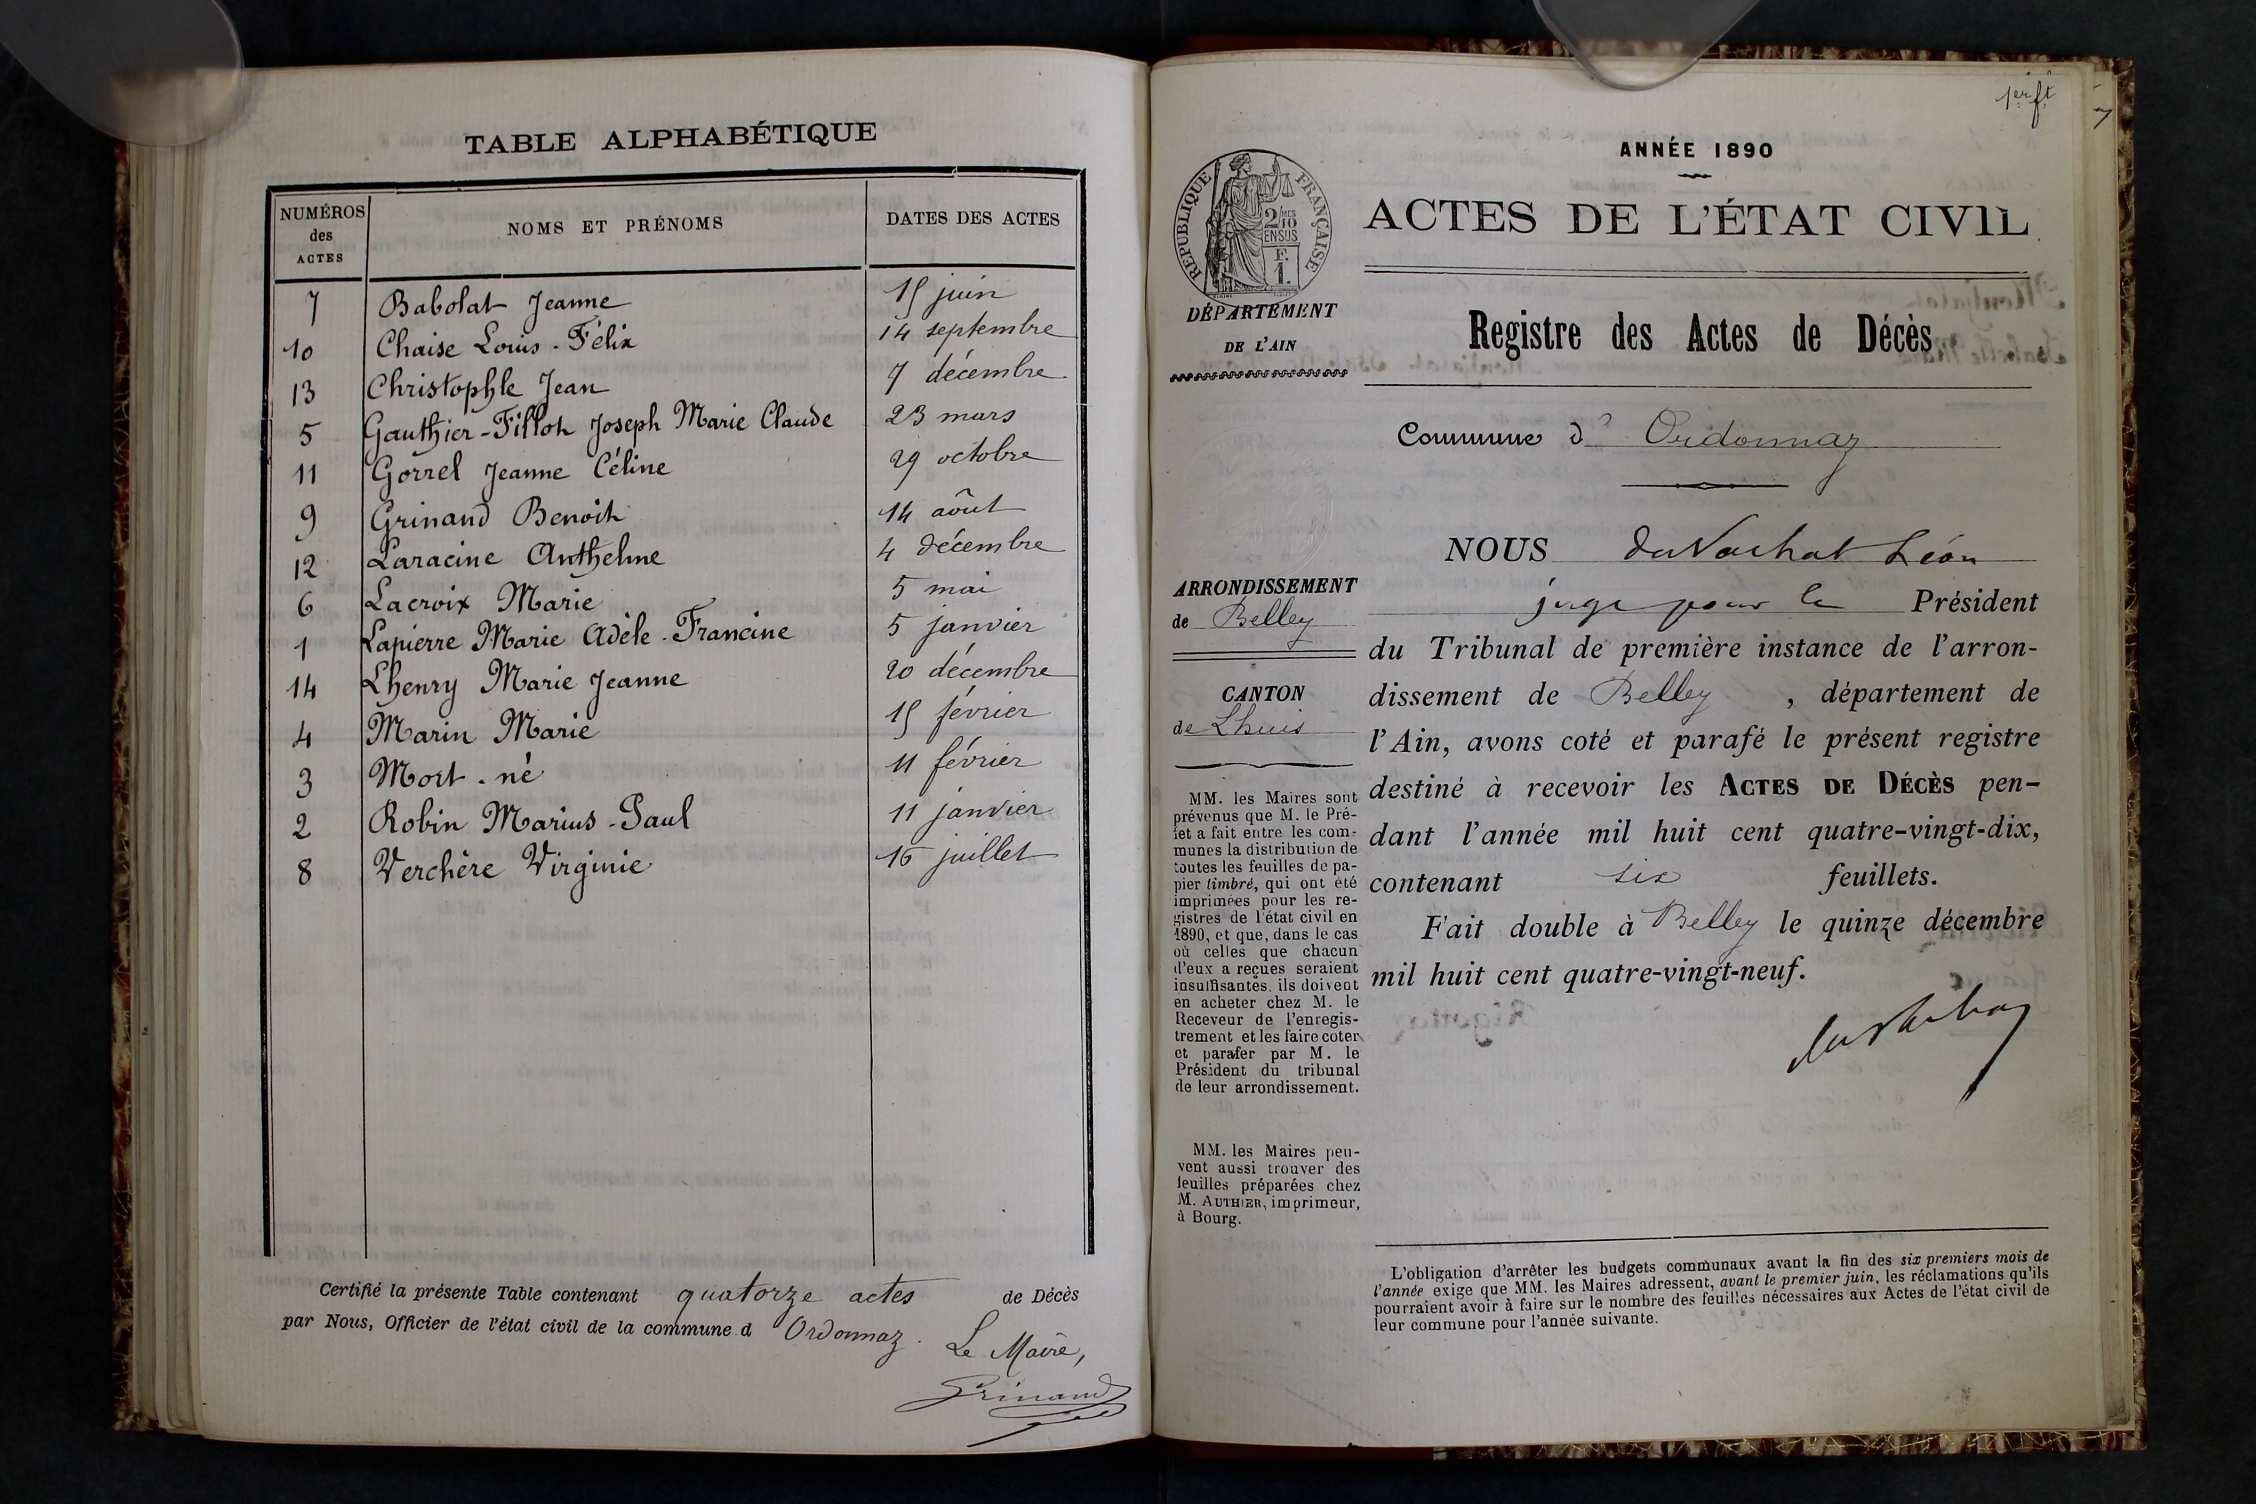 TABLE ALPHABÉTIQUE
NUMÉROS des ACTES NOMS ET PRÉNOMS DATES DES ACTES
7 Babolat Jeanne 15 juin
10 Chaise Louis-Félix 14 septembre
13 Christophle Jean 7 décembre
5 Gauthier-Filloh Joseph Marie Claude 23 mars
11 Gorrel Jeanne Céline 29 octobre
9 Grinand Benoit 14 aôut
12 Laracine Anthelme 4 décembre
6 Lacroix Marie 5 mai
1 Lapierre Marie Adèle-Francine 5 janvier
14 Lhenry Marie Jeanne 20 décembre
4 Marin Marie 15 février
3 Mort-né 11 février
2 Robin Marius-Paul 11 janvier
8 Verchère Virginie 16 juillet
Certifié la présente Table contenant quatorze actes de Décès
par Nous, Officier de l'état civil de la commune d Ordonnaz.
Le Maire,
Grinand
1er ft
ANNÉE 1890
RÉPUBLIQUE FRANÇAISE
ACTES DE L'ÉTAT CIVIL
DÉPARTEMENT
DE L'AIN
Registre des Actes de Décès
Commune d' Ordonnaz
ARRONDISSEMENT
de Belley
CANTON
de Lhuis
MM. les Maires sont
prévenus que M. le Pré-
fet a fait entre les com-
munes la distribution de
toutes les feuilles de pa-
pier timbré, qui ont été
imprimées pour les re-
gistres de l'état civil en
1890, et que, dans le cas
où celles que chacun
d'eux a reçues seraient
insuffisantes, ils doivent
en acheter chez M. le
Receveur de l'enregis-
trement et les faire coter
et parafer par M. le
Président du tribunal
de leur arrondissement.
MM. les Maires peu-
vent aussi trouver des
feuilles préparées chez
M. AUTHIER, imprimeur,
à Bourg.
NOUS du Vachat Léon
juge pour le Président
du Tribunal de première instance de l'arron-
dissement de Belley, département de
l'Ain, avons coté et parafé le présent registre
destiné à recevoir les ACTES DE DÉCÈS pen-
dant l'année mil huit cent quatre-vingt-dix,
contenant six feuillets.
Fait double à Belley le quinze décembre
mil huit cent quatre-vingt-neuf.
L'obligation d'arrêter les budgets communaux avant la fin des six premiers mois de
l'année exige que MM. les Maires adressent, avant le premier juin, les réclamations qu'ils
pourraient avoir à faire sur le nombre des feuilles nécessaires aux Actes de l'état civil de
leur commune pour l'année suivante.